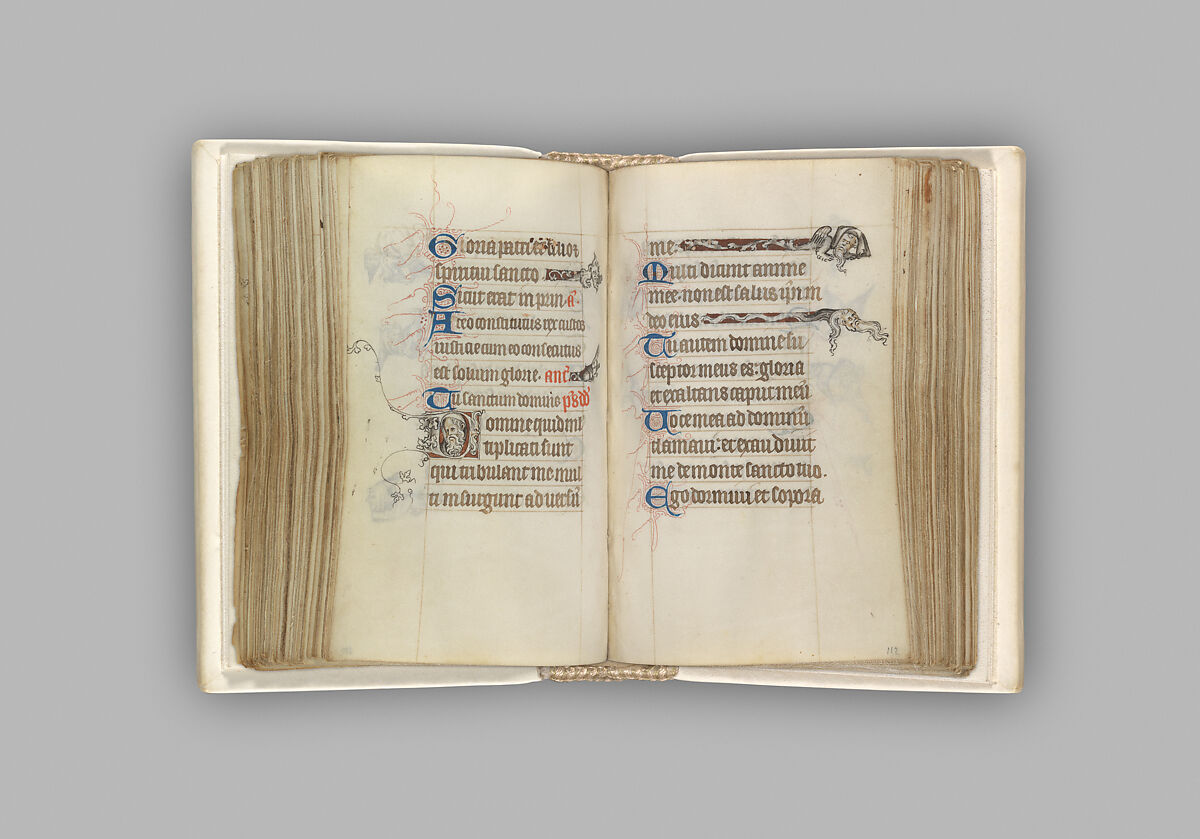 Gloria patri et
spiritui sancto
Sicut erat in prin a͞.
A deo constitutus rex custos
iusticie cum eo consecutus
est solium glorie. an͞t
Tu sanctum domine ps dd
Domine quid ml
tiplicati sunt
qui tribulant me mul
ti insurgunt adversū
me.
Multi dicunt anime
mee. non est salus ip̄i in
deo eius
Tu autem domine su
sceptor meus es: gloria
et exaltans caput meū
Uoce mea ad dominū
clamavi: et exaudivit
me de monte sancto suo.
Ego dormivi et sopora
112